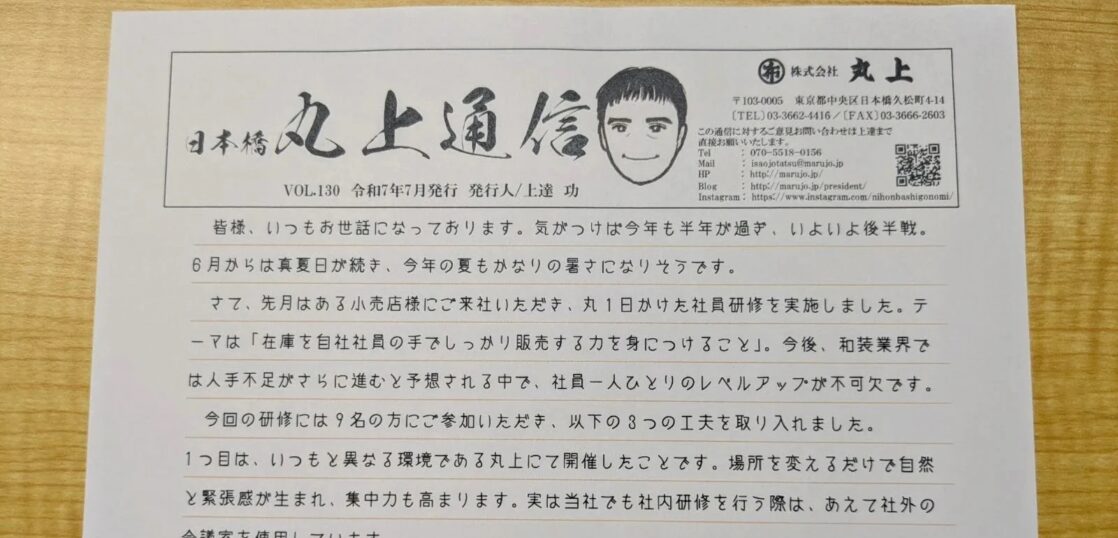 日本橋 丸上通信
VOL.130 令和7年7月発行 発行人/上達 功
布 株式会社 丸上
〒103-0005 東京都中央区日本橋久松町4-14
〔TEL〕03-3662-4416／〔FAX〕03-3666-2603
この通信に対するご意見お問い合わせは上達まで
直接お願いいたします。
Tel : 070-5518-0156
Mail : isaojotatsu@marujo.jp
HP : http://marujo.jp/
Blog : http://marujo.jp/president/
Instagram : https://www.instagram.com/nihonbashigonomi/
皆様、いつもお世話になっております。気がつけば今年も半年が過ぎ、いよいよ後半戦。
6月からは真夏日が続き、今年の夏もかなりの暑さになりそうです。
さて、先月はある小売店様にご来社いただき、丸1日かけた社員研修を実施しました。テ
ーマは「在庫を自社社員の手でしっかり販売する力を身につけること」。今後、和装業界で
は人手不足がさらに進むと予想される中で、社員一人ひとりのレベルアップが不可欠です。
今回の研修には9名の方にご参加いただき、以下の3つの工夫を取り入れました。
1つ目は、いつもと異なる環境である丸上にて開催したことです。場所を変えるだけで自然
と緊張感が生まれ、集中力も高まります。実は当社でも社内研修を行う際は、あえて社外の
会議室を使用しています